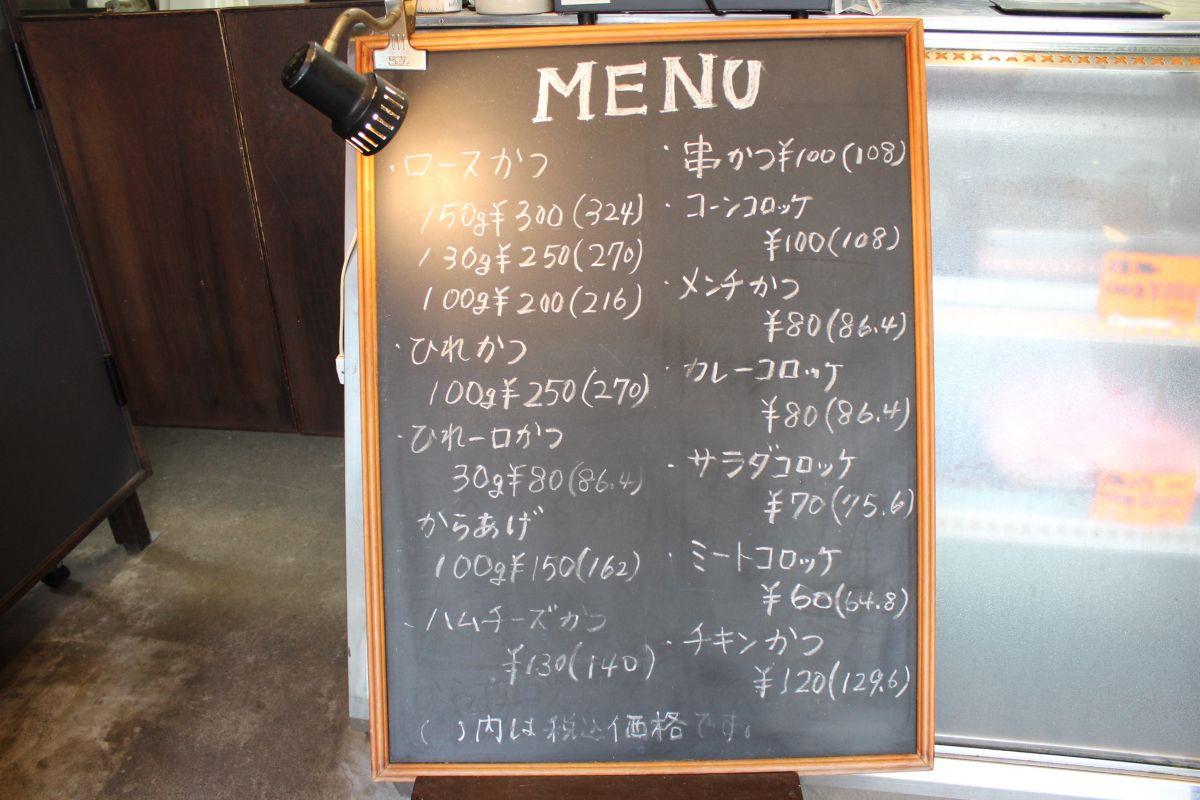 MENU
・ロースかつ
150g¥300(324)
130g¥250(270)
100g¥200(216)
・ひれかつ
100g¥250(270)
・ひれ一口かつ
30g¥80(86.4)
からあげ
100g¥150(162)
・ハムチーズかつ
¥130(140)
・串かつ¥100(108)
・コーンコロッケ
¥100(108)
・メンチかつ
¥80(86.4)
・カレーコロッケ
¥80(86.4)
・サラダコロッケ
¥70(75.6)
・ミートコロッケ
¥60(64.8)
・チキンかつ
¥120(129.6)
( )内は税込価格です。